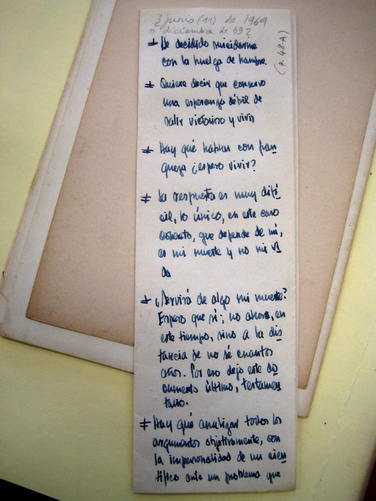 ¿Junio (11) de 1969
o diciembre de 69?
(p. 48-A)
‡ He decidido suicidarme
con la huelga de hambre.
‡ Quiere decir que conservo
una esperanza débil de
salir victorioso y vivir
‡ Hay qué hablar con fran
queza ¿espero vivir?
‡ La respuesta es muy difí
cil, lo único, en este caso
concreto, que depende de mí,
es mi muerte y no mi vi
da
‡ ¿Servirá de algo mi muerte?
Espero que sí; no ahora, en
este tiempo, sino a la dis
tancia de no sé cuantos
años. Por eso dejo este do
cumento último, testamen
tario.
‡ Hay qué analizar todos los
argumentos objetivamente, con
la impersonalidad de un cien
tífico ante un problema que